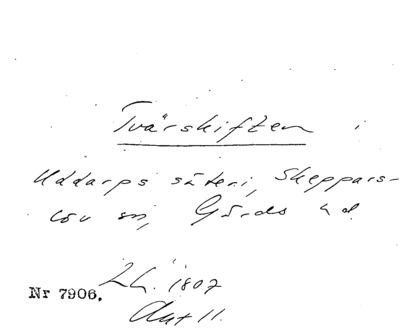 Tvärskiften i
Uddarps säteri, Skeppars-
löv sn, Gärds hd.
L.L. 1807
Nr 7906.
Akt 11.